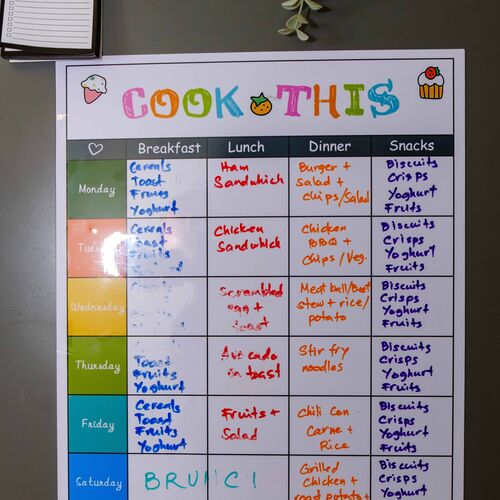 COOK THIS
Breakfast Lunch Dinner Snacks
Monday
Cereals
Toast
Fruits
Yoghurt
Ham
Sandwhich
Burger +
salad +
chips/Salad
Biscuits
Crisps
Yoghurt
Fruits
Tuesday
Cereals
Toast
Fruits
Chicken
Sandwhich
Chicken
BBQ +
chips/Veg.
Biscuits
Crisps
Yoghurt
Fruits
Wednesday
Scrambled
egg +
toast
Meat ball/Beef
stew + rice/
potato
Biscuits
Crisps
Yoghurt
Fruits
Thursday
Toast
Fruits
Yoghurt
Avocado
on toast
Stir fry
noodles
Biscuits
Crisps
Yoghurt
Fruits
Friday
Cereals
Toast
Fruits
Yoghurt
Fruits +
Salad
Chili Con
Carne +
Rice
Biscuits
Crisps
Yoghurt
Fruits
Saturday
BRUNCH
Grilled
chicken +
road potato+
Biscuits
Crisps
Yoghurt